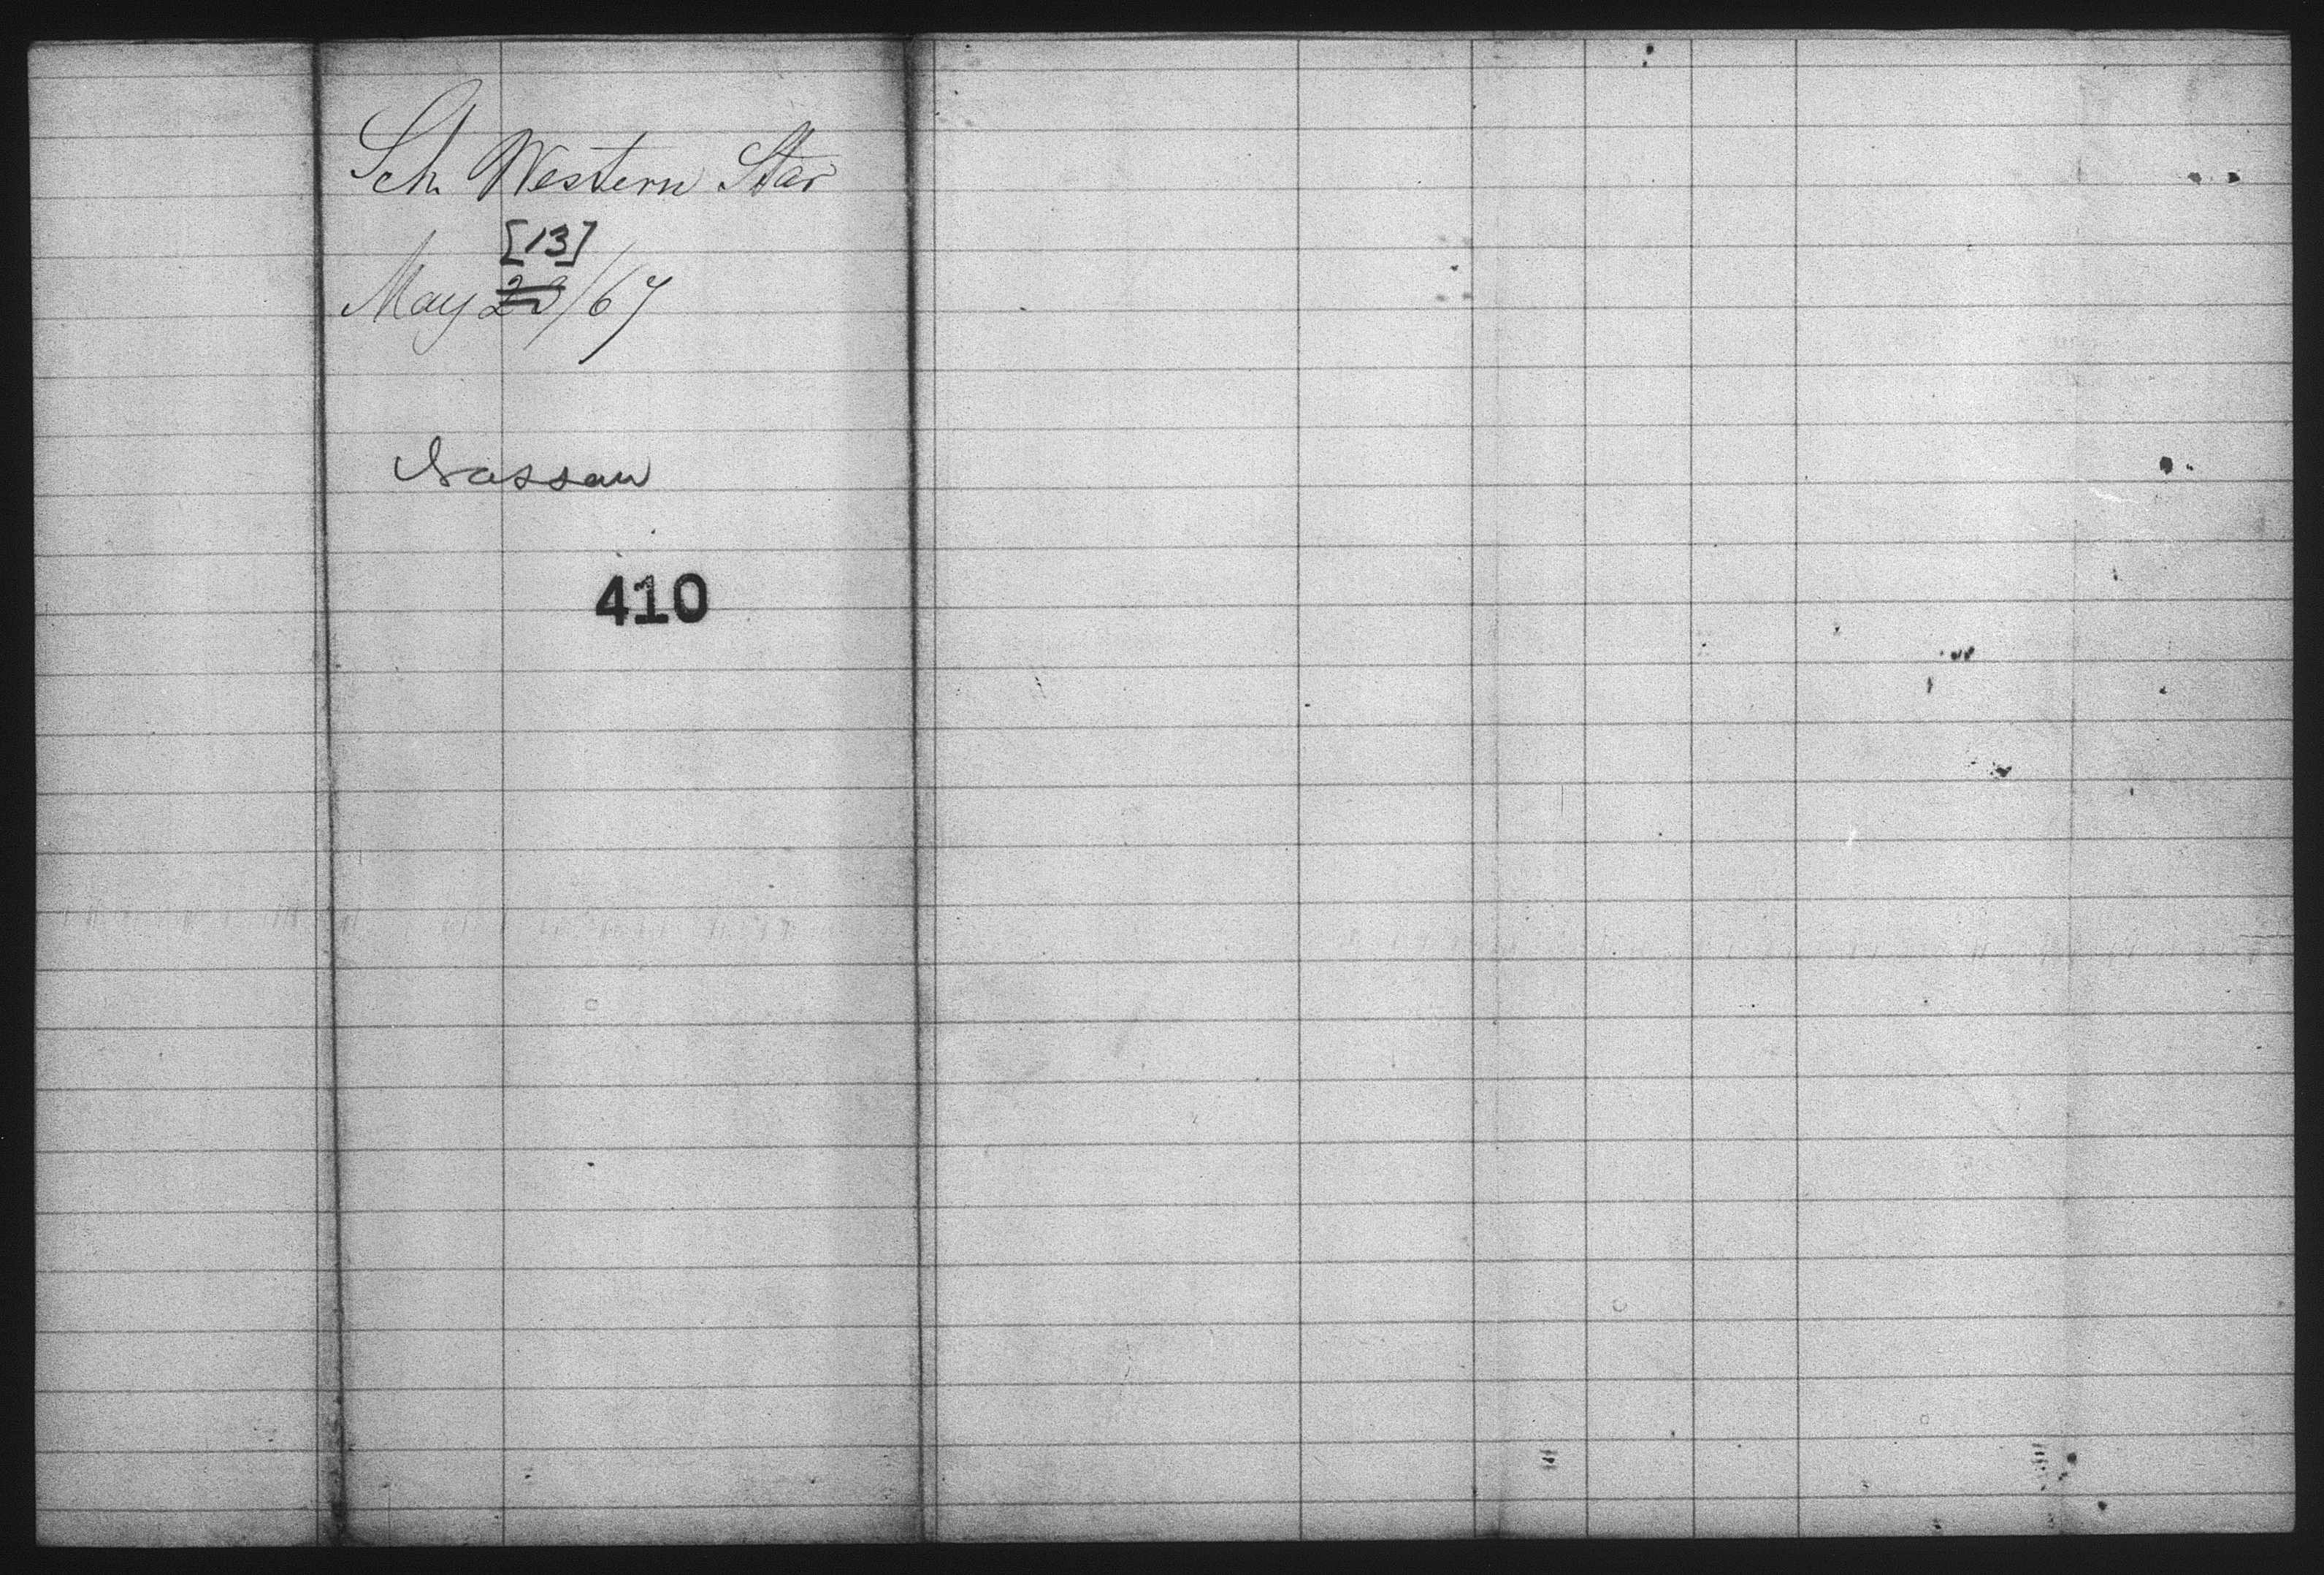 Sch. Western Star
[13]
May 23/67
Nassau
410